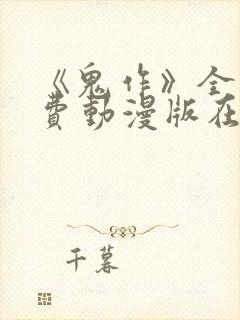 《鬼作》全
費動漫版在
千暮